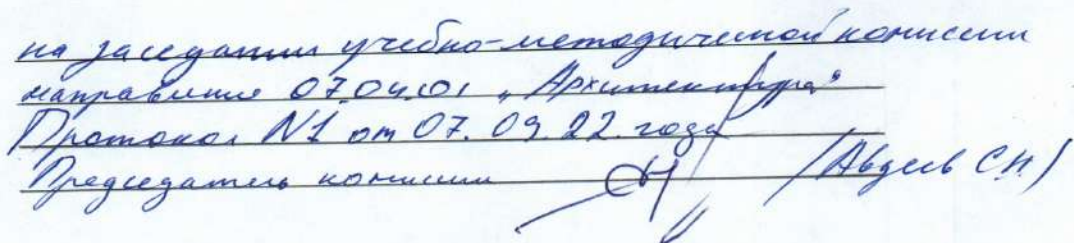 на заседании учебно-методической комиссии
направление 07.04.01 „Архитектура"
Протокол N1 от 07.09.22 года
Председатель комиссии (Авдеев С.Н.)